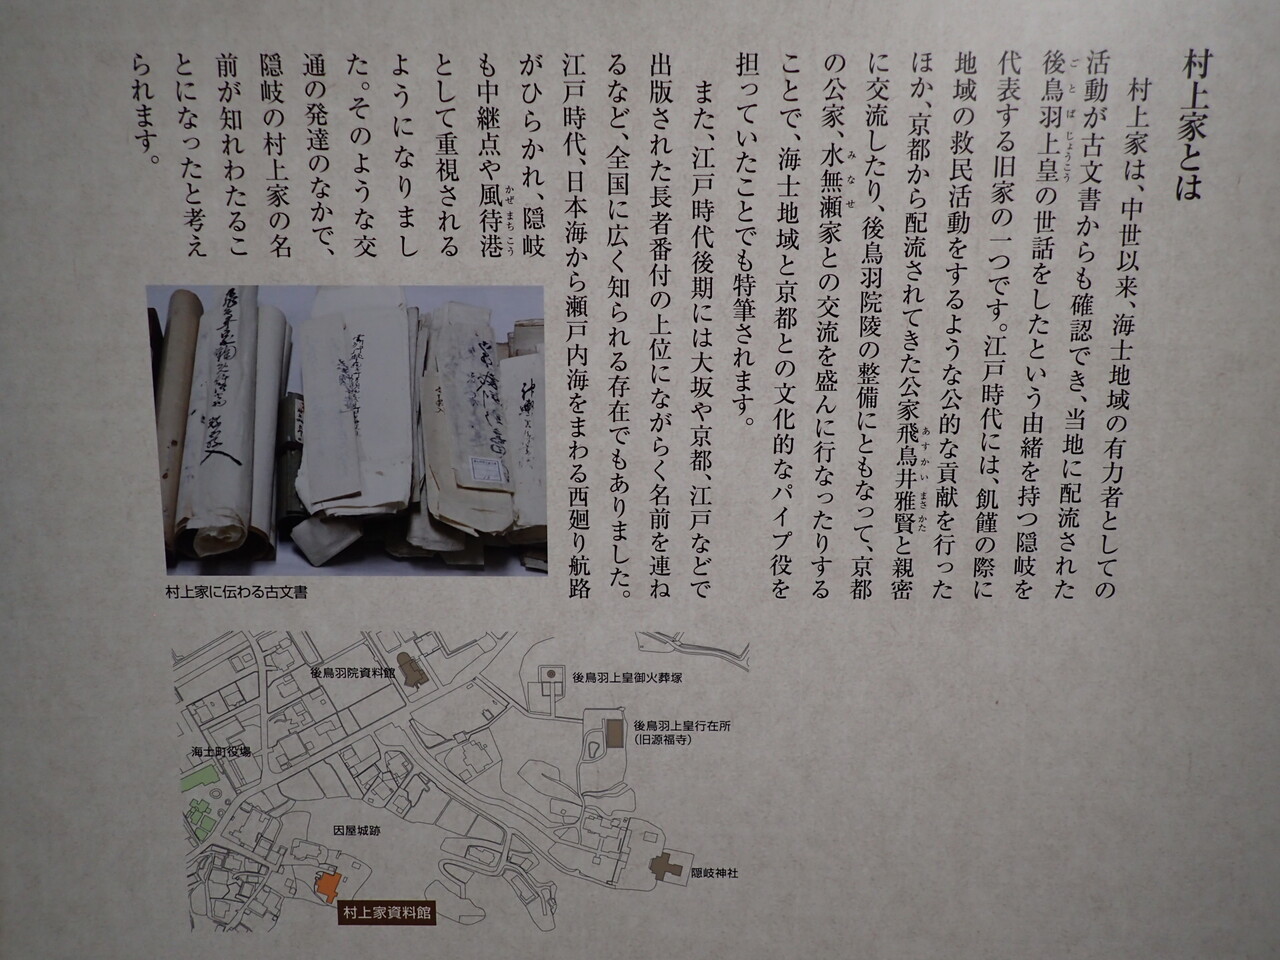 村上家とは
村上家は、中世以来、海士地域の有力者としての
活動が古文書からも確認でき、当地に配流された
後鳥羽上皇の世話をしたという由緒を持つ隠岐を
ごとばじょうこう
代表する旧家の一つです。江戸時代には、飢饉の際に
地域の救民活動をするような公的な貢献を行った
ほか、京都から配流されてきた公家飛鳥井雅賢と親密
あすかいまさかた
に交流したり、後鳥羽院陵の整備にともなって、京都
の公家、水無瀬家との交流を盛んに行なったりする
みなせ
ことで、海士地域と京都との文化的なパイプ役を
担っていたことでも特筆されます。
また、江戸時代後期には大坂や京都、江戸などで
出版された長者番付の上位にながらく名前を連ね
るなど、全国に広く知られる存在でもありました。
江戸時代、日本海から瀬戸内海をまわる西廻り航路
がひらかれ、隠岐
も中継点や風待港
かぜまちこう
として重視される
ようになりまし
た。そのような交
通の発達のなかで、
隠岐の村上家の名
前が知れわたるこ
とになったと考え
られます。
村上家に伝わる古文書
後鳥羽院資料館
後鳥羽上皇御火葬塚
後鳥羽上皇行在所
（旧源福寺）
海士町役場
因屋城跡
隠岐神社
村上家資料館